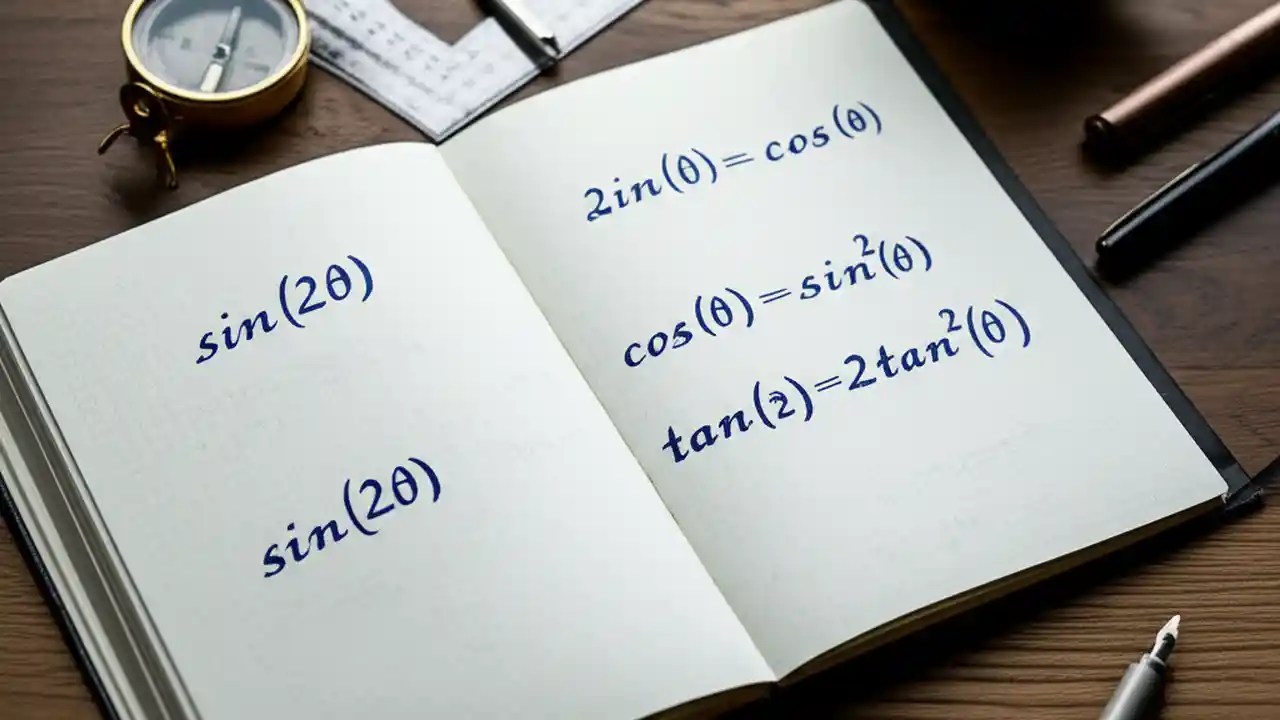 sin(2θ)
sin(2θ)
2in(θ) = cos(θ)
cos(θ) = sin²(θ)
tan(2) = 2tan²(θ)